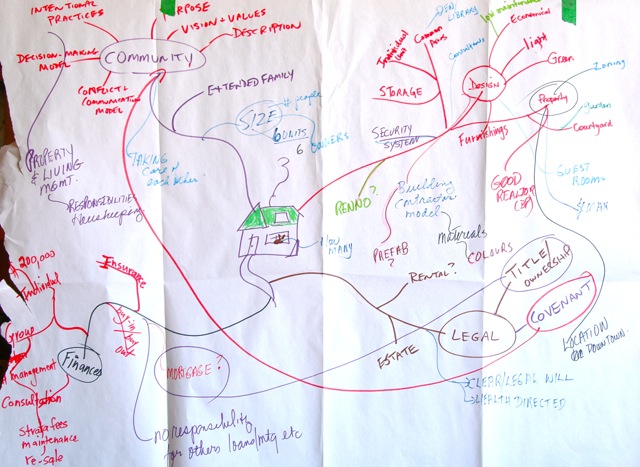 INTENTIONAL
PRACTICES
VISION + VALUES
DESCRIPTION
DECISION-MAKING
MODEL
COMMUNITY
CONFLICT +
COMMUNICATION
MODEL
EXTENDED FAMILY
TAKING
care of
each other
PROPERTY
& LIVING
MGMT.
RESPONSIBILITIES
& housekeeping
SIZE
# people
6 UNITS
6
3
How
many
DEN/
LIBRARY
Individual
Common
Areas
STORAGE
SECURITY
SYSTEM
Consultants
low maintenance
Economical
light
Green
DESIGN
Furnishings
Property
Zoning
Garden
Courtyard
GUEST
ROOM
GOOD
REALTOR
RENNO?
PREFAB
?
Building
contractor
model
Materials
COLOURS
RENTAL?
TITLE/
OWNERSHIP
LEGAL
COVENANT
ESTATE
CLEAR/LEGAL WILL
HEALTH DIRECTED
LOCATION
DOWNTOWN
$200,000
Individual
Insurance
buy-in/
out
group
Finances
management
Consultation
Strata fees
maintenance
re-sale
MORTGAGE?
no responsibility
for others loans/mtg etc